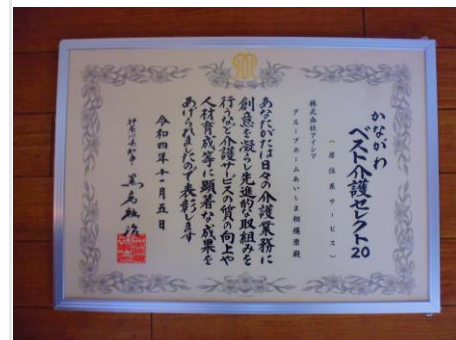 かながわ
ベスト介護セレクト20
（居住系サービス）
株式会社アイシマ
グループホームあいしま相模原殿
あなたがたは日々の介護業務に
創意を凝らし先進的な取組みを
行うなど介護サービスの質の向上や
人材育成等に顕著な成果を
あげられましたので表彰します
令和四年十一月五日
神奈川県知事 黒岩祐治